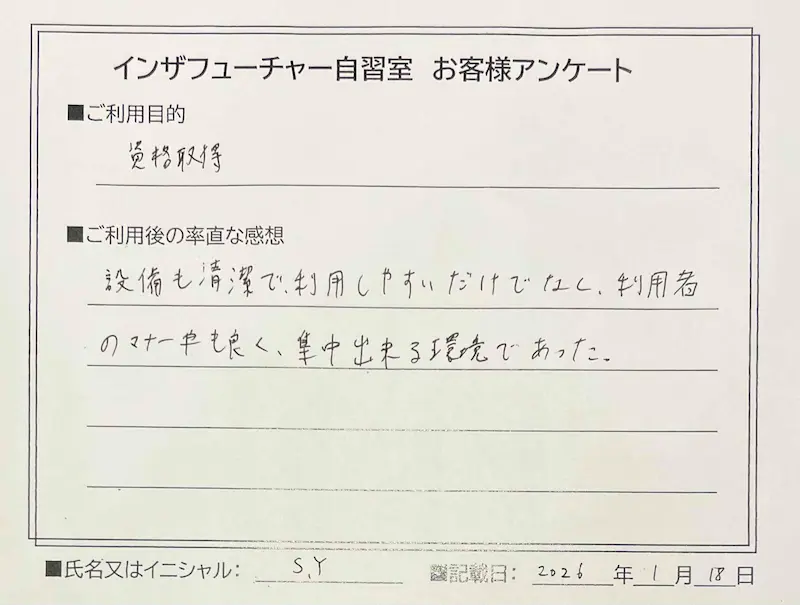 インザフューチャー自習室 お客様アンケート
■ご利用目的
資格取得
■ご利用後の率直な感想
設備も清潔で、利用しやすいだけでなく、利用者
のマナーも良く、集中出来る環境であった。
■氏名又はイニシャル： S.Y ■記載日： 2026年1月18日